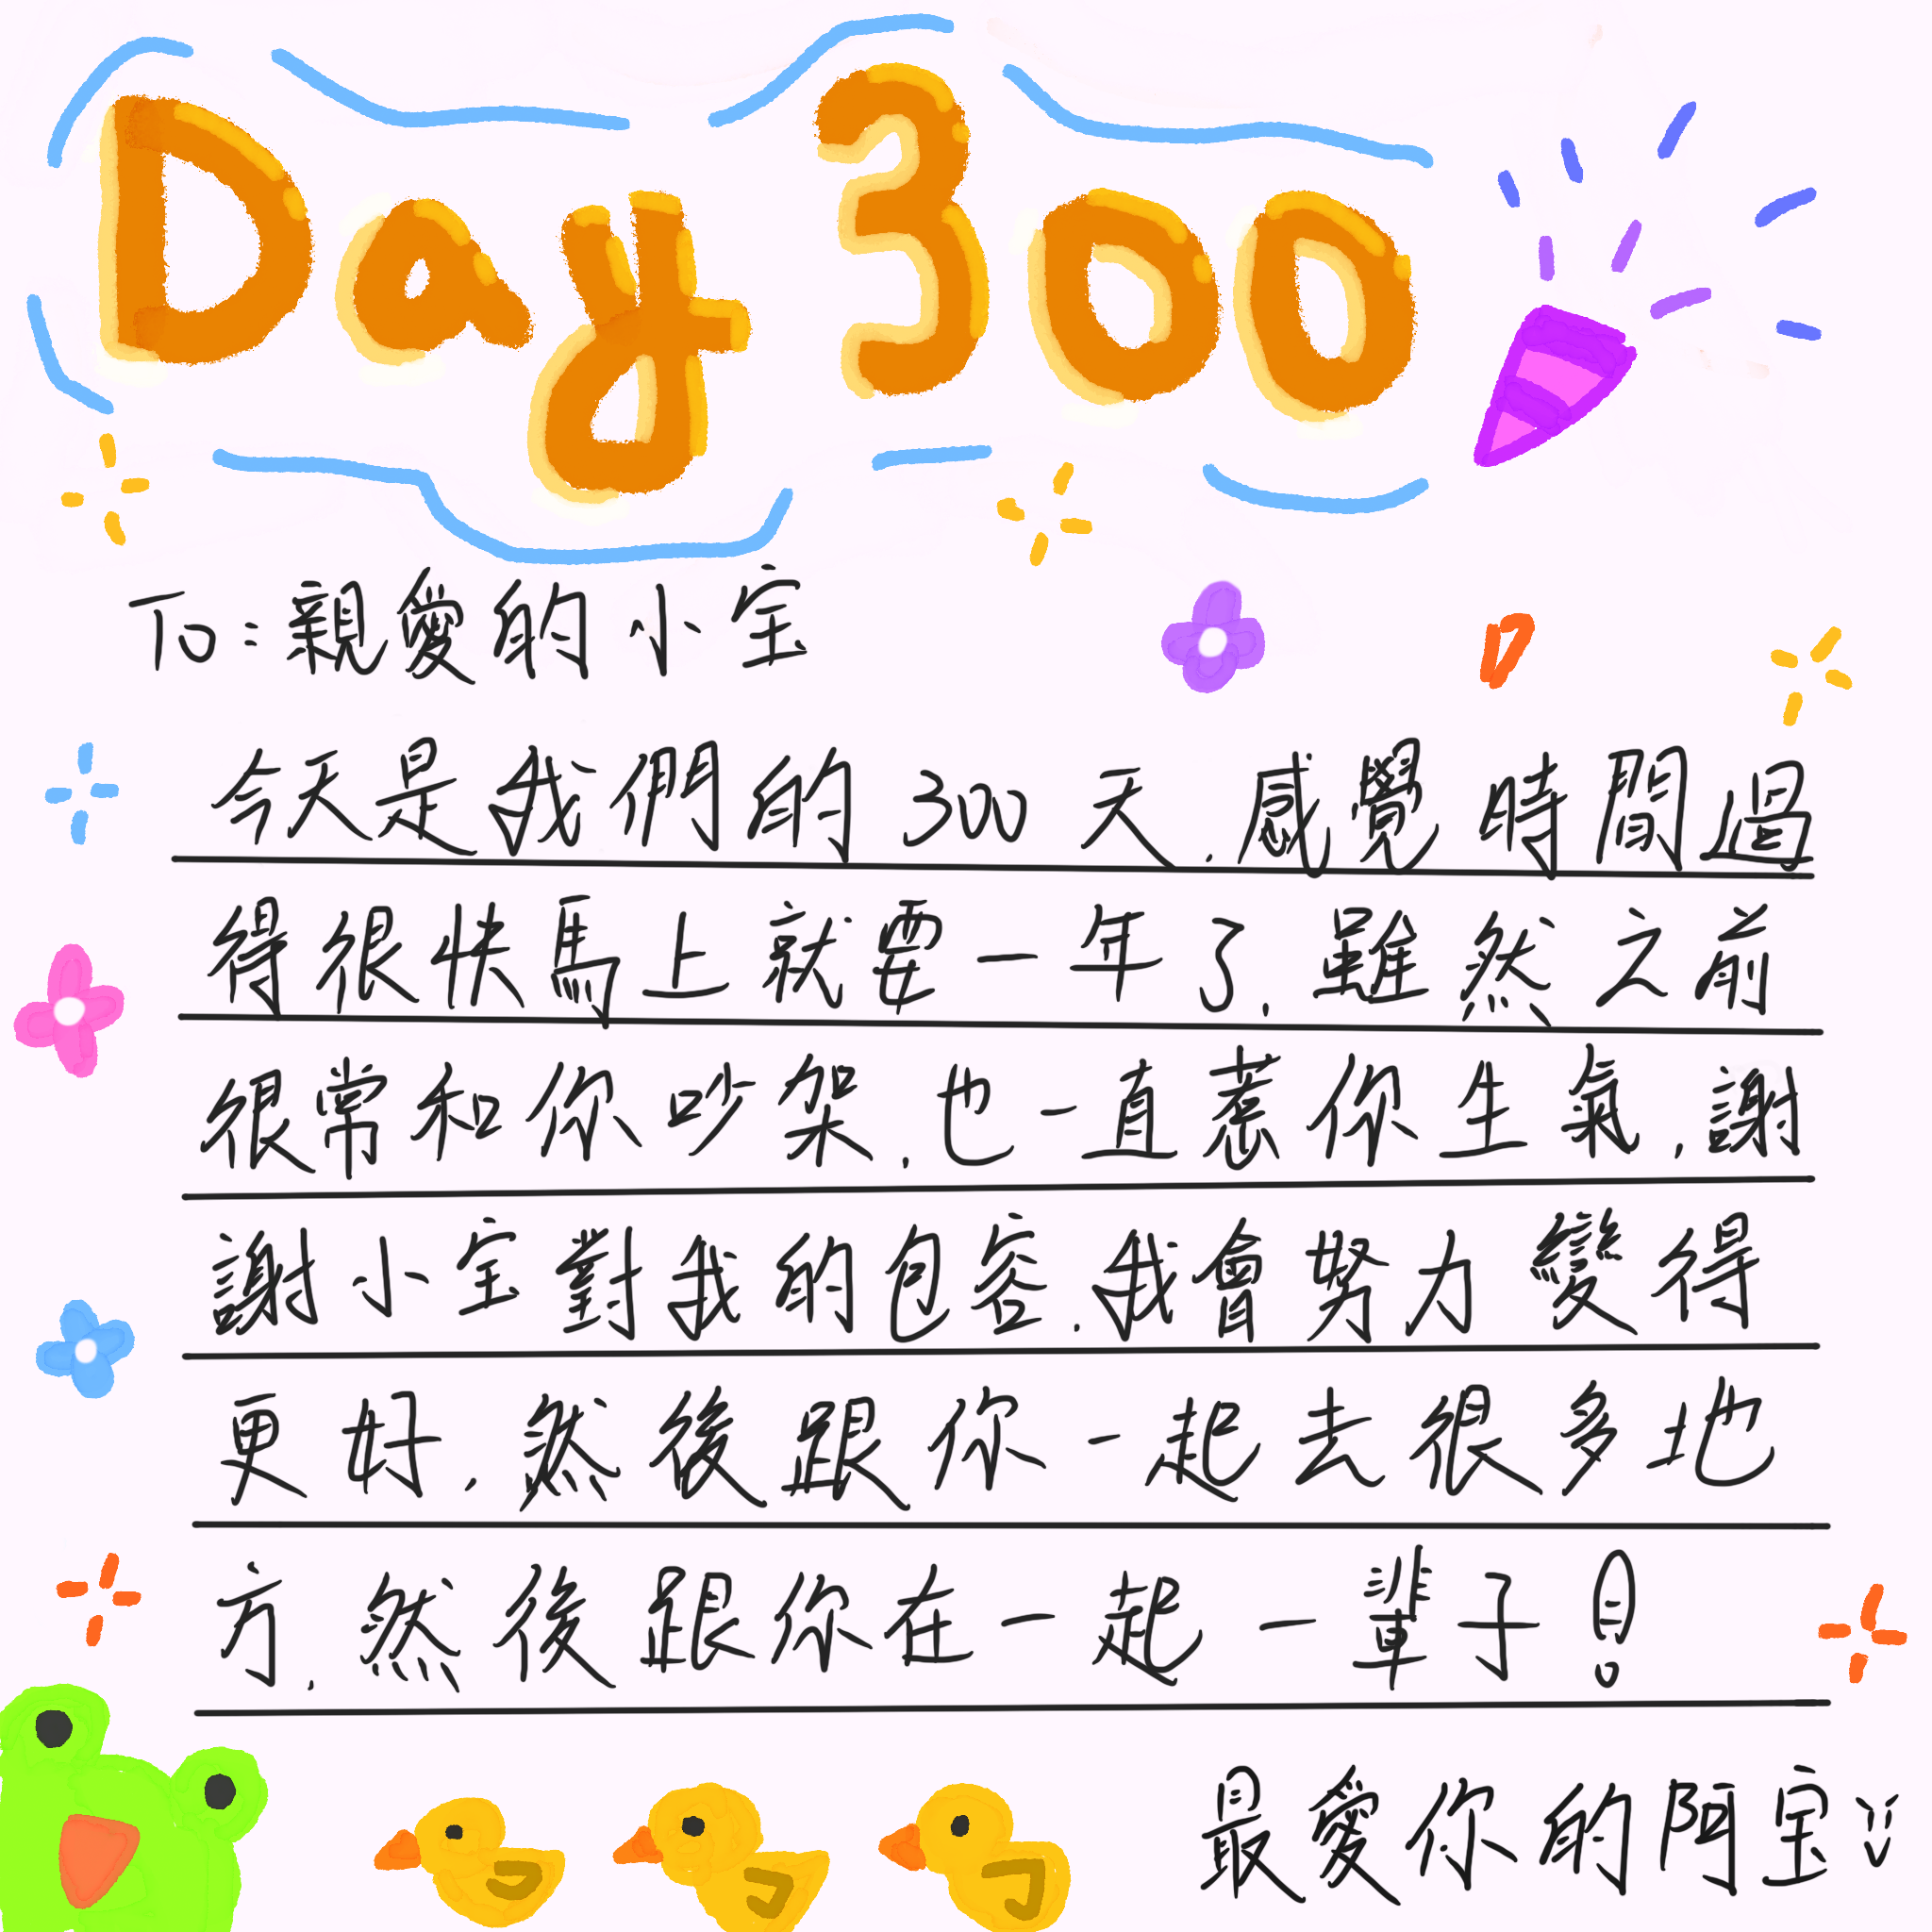 Day 300
To:親愛的小宝
今天是我們的300天.感覺時間過
得很快馬上就要一年了.雖然之前
很常和你吵架.也一直惹你生氣.謝
謝小宝對我的包容.我會努力變得
更好.然後跟你一起去很多地
方.然後跟你在一起一輩子!
最愛你的阿宝